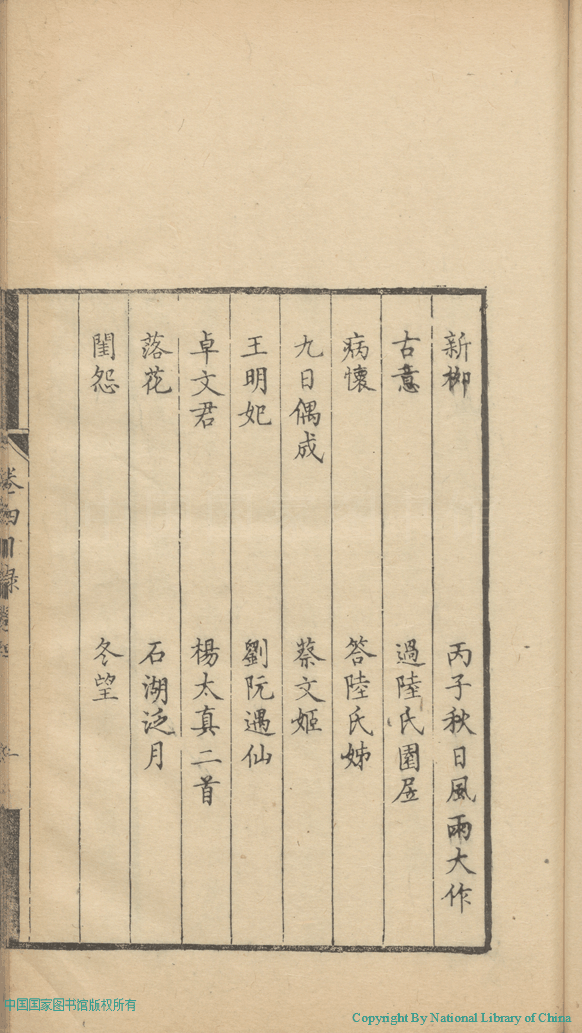 新柳 丙子秋日風雨大作
古意 過陸氏園居
病懷 答陸氏姊
九日偶成 蔡文姬
王明妃 劉阮遇仙
卓文君 楊太真二首
落花 石湖泛月
閨怨 冬望
卷四目錄
中国国家图书馆版权所有
Copyright By National Library of China